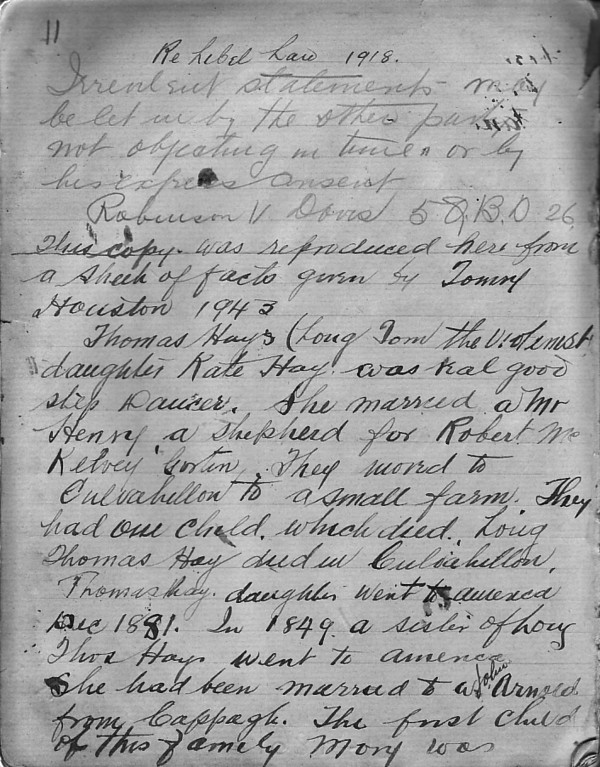 11
Re libel Law 1918.
Irrevelent statements may
be let in by the other party
not objecting in time or by
his express consent
Robinson V. Davis 5 Q.B.D 26
This copy was reproduced here from
a sheet of facts given by Tommy
Houston 1943
Thomas Hays (Long Tom the violinist
daughter Kate Hay was real good
step Dancer. She married a Mr
Henry a shepherd for Robert Mc
Kelvey Gortin. They moved to
Culvahullion to a small farm. They
had one child, which died. Long
Thomas Hay died in Culvahullion.
Thomas Hay daughter went to america
Dec 1881. In 1849 a sister of Long
Thos Hays went to america
She had been married to a John Arnold
from Cappagh. The first child
of this family Mary was